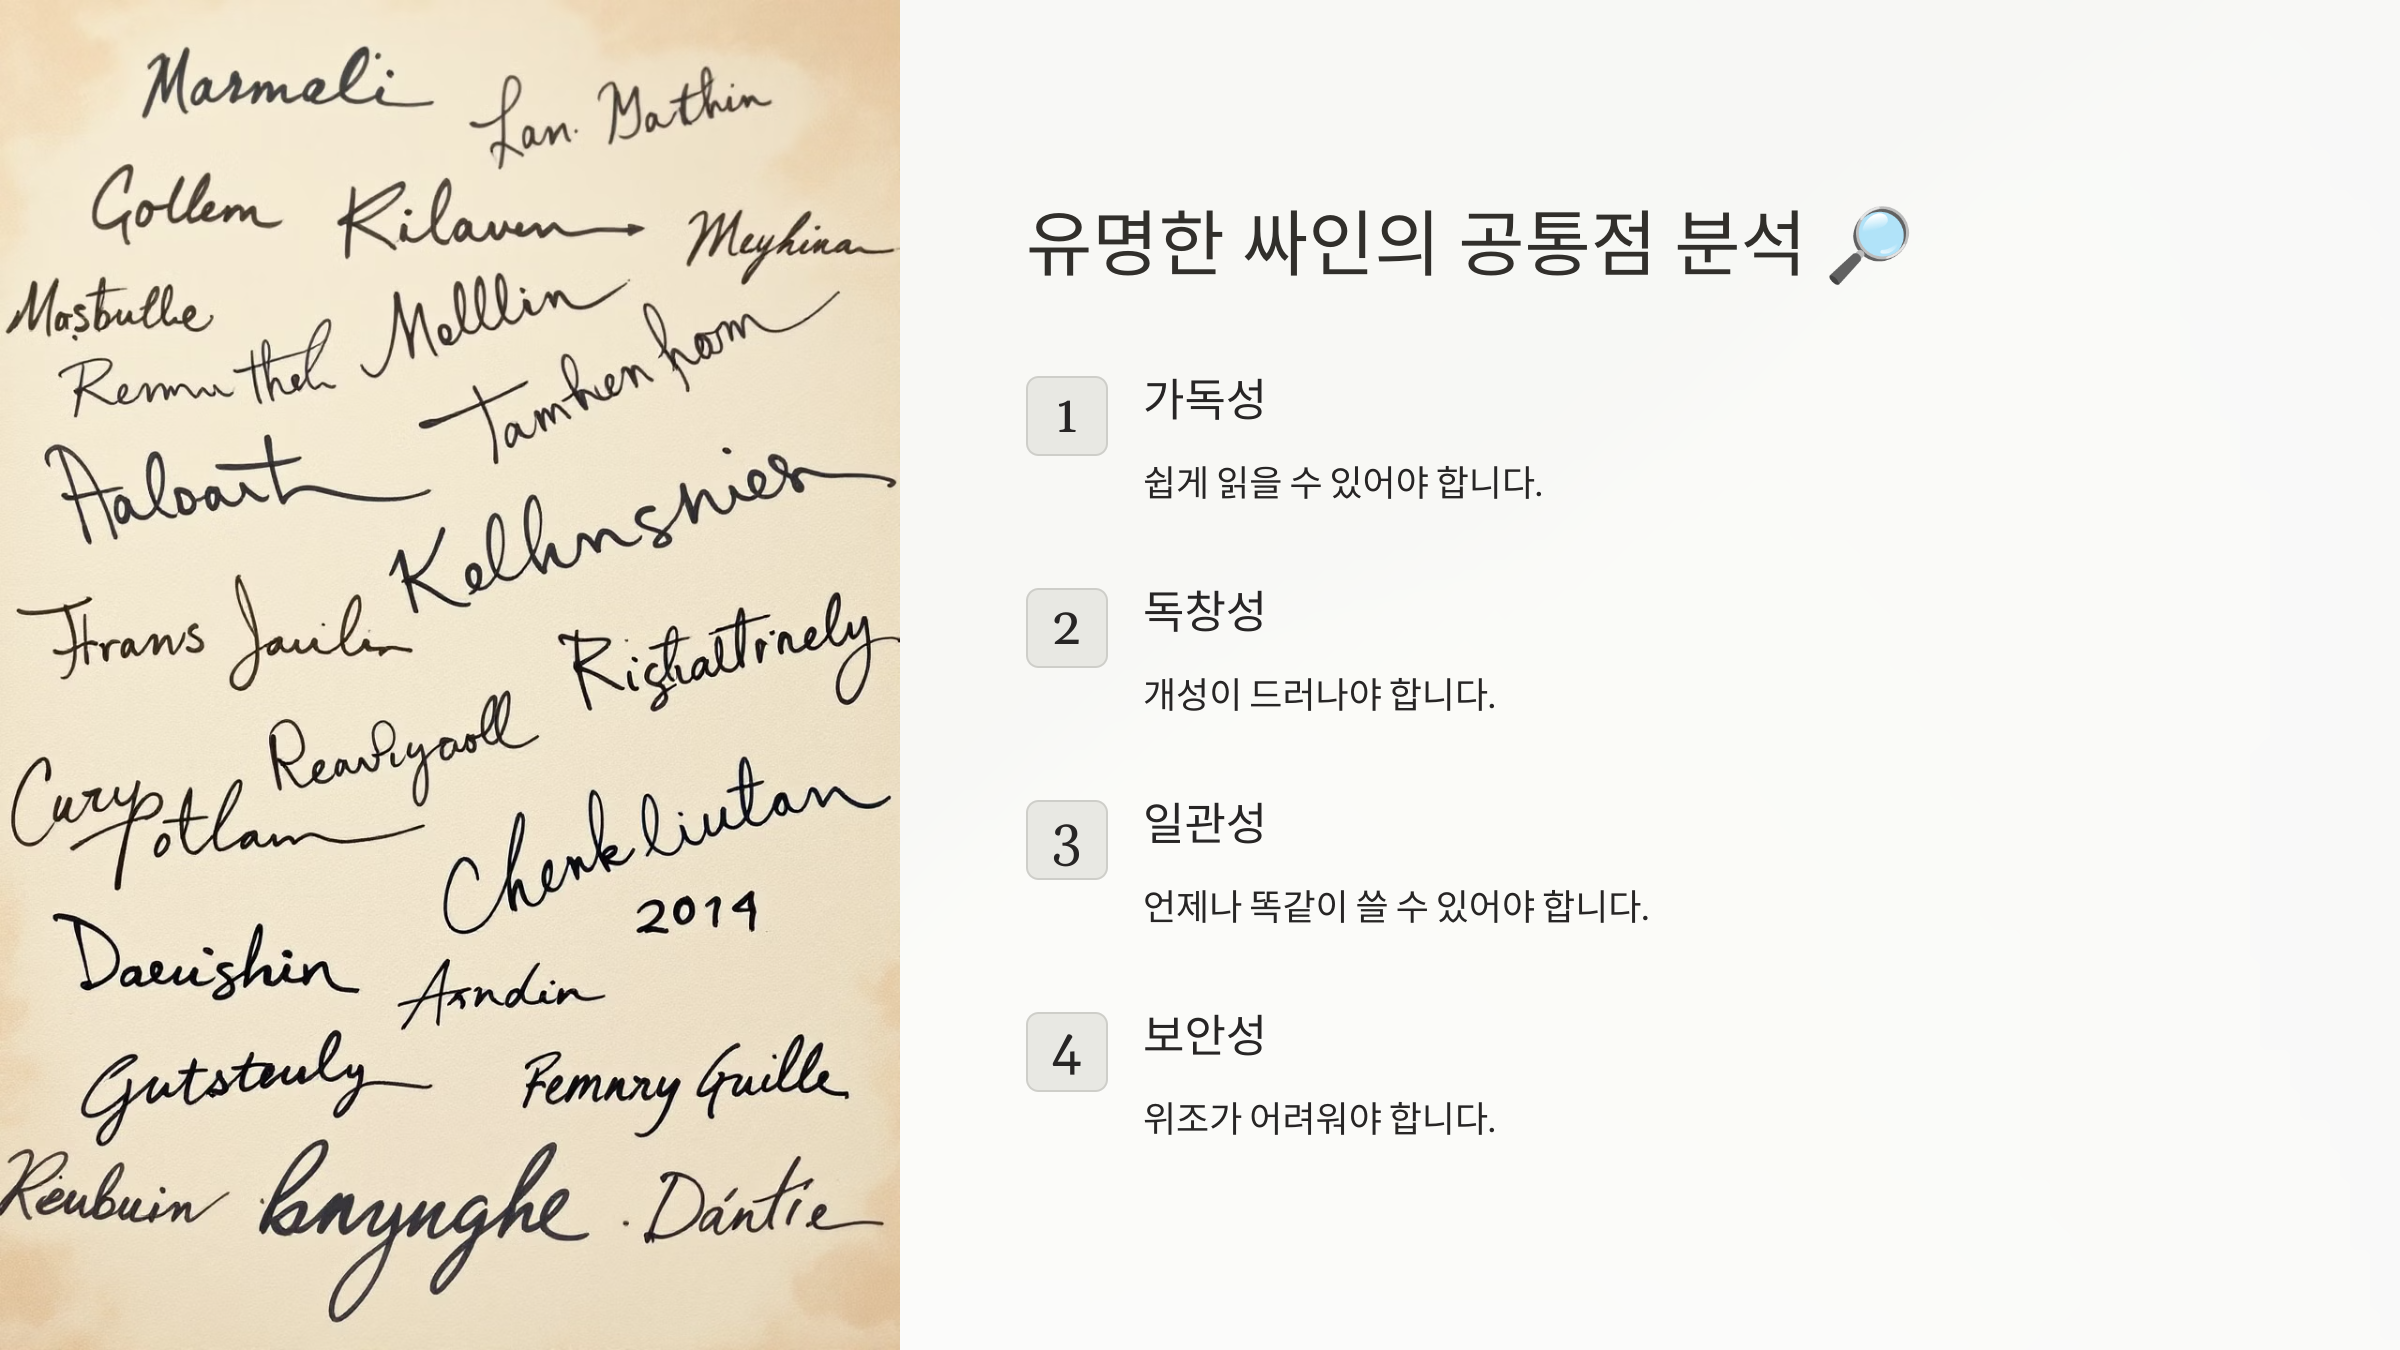 Marmali
Lan. Mathin
Gollem
Kilaven
Meyhina
Mosbuthe
Melllin
Remu thel
Tamhen hom
Aaloart
Kelhnsnier
Frans Jaulin
Rishattrinely
Reaviyaoll
Cury
otlam
Chenkliutan
2014
Daeuishin
Arndin
Gutsteuly
Femnry Guille
Reubuin
bnynghe
Dántíe
유명한 싸인의 공통점 분석 🔎
1 가독성
쉽게 읽을 수 있어야 합니다.
2 독창성
개성이 드러나야 합니다.
3 일관성
언제나 똑같이 쓸 수 있어야 합니다.
4 보안성
위조가 어려워야 합니다.